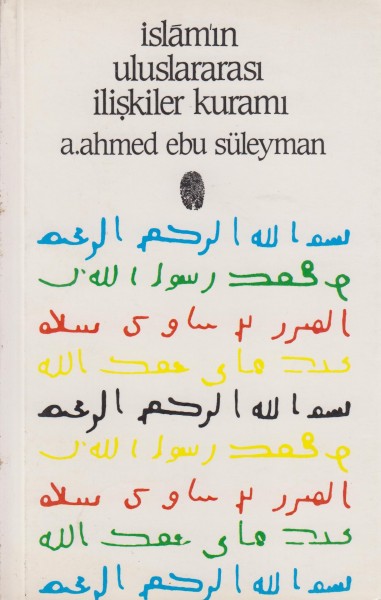 islâm'ın
uluslararası
ilişkiler kuramı
a.ahmed ebu süleyman
بسم الله الرحمن الرحيم
محمد رسول الله
المنذر بن ساوى سلام
الله
بسم الله الرحمن الرحيم
محمد رسول الله
المنذر بن ساوى سلام
الله
بسم الله الرحمن الرحيم